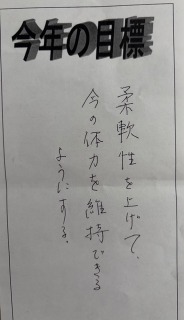 今年の目標
柔軟性を上げて、
今の体力を維持できる
ようにする。